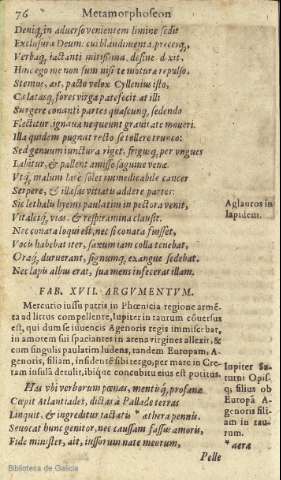 76 Metamorphoseon
Deniq, in aduerso venientem limine sedit
Exclusura Deum. cui blandimenta, precesq,
Verbaq, iactanti mitissima, desine, dixit,
Hinc ego me non sum nisi te motura repulso.
Stemus, ait, pacto velox Cyllenius isto,
Cælatasq, fores virga patefecit. at illi
Surgere conanti partes quascunq, sedendo
Flectitur, ignaua nequeunt grauitate moueri.
Illa quidem pugnat recto se tollere trunco:
Sed genuum iunctura riget, frigusq, per vngues
Labitur, & pallent amisso sanguine venæ.
Vtq, malum late solet immedicabile cancer
Serpere, & illæsas vitiatis addere partes:
Sic lethalis hyems paulatim in pectora venit,
Vitalesq, vias, & respiramina clausit.
Nec conata loqui est, nec si conata fuisset,
Vocis habebat iter, saxum iam colla tenebat,
Oraq, duruerant, signumq, exangue sedebat.
Nec lapis albus erat, sua mens infecerat illam.
Aglauros in
lapidem.
FAB. XVII. ARGVMENTVM.
Mercurio iussu patris in Phœnicia regione armẽ-
ta ad littus compellente, Iupiter in taurum cõuersus
est, qui dum se iuuencis Agenoris regis immiscebat,
in amotem sui spaciantes in arena virgines allexit, &
cum singulis paulatim ludens, tandem Europam, A-
genoris, filiam, insidentẽ sibi tergo, per mare in Cre-
tam insulã detulit, ibiq́ue concubitu eius est potitus.
HAs vbi verborum pœnas, mentisq, profanæ
Cepit Atlantiades, dictas à Pallade terras
Linquit, & ingreditur iactatis * æthera pennis.
Seuocat hunc genitor, nec caussam fassus amoris,
Fide minister, ait, iussorum nate meorum,
Iupiter Sa-
turni Opis-
q; filius ob
Europã A-
genoris fili-
am in tau-
rum.
*aera
Pelle
Biblioteca de Galicia